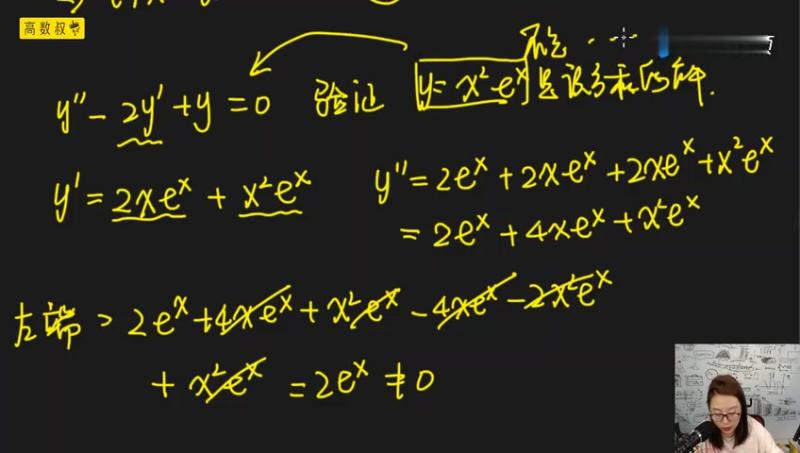 高数叔
不是
y''-2y'+y=0 验证 y=x²eˣ 是该方程的解.
y'=2xeˣ+x²eˣ y''=2eˣ+2xeˣ+2xeˣ+x²eˣ
=2eˣ+4xeˣ+x²eˣ
左端=2eˣ+4xeˣ+x²eˣ-4xeˣ-2x²eˣ
+x²eˣ=2eˣ≠0